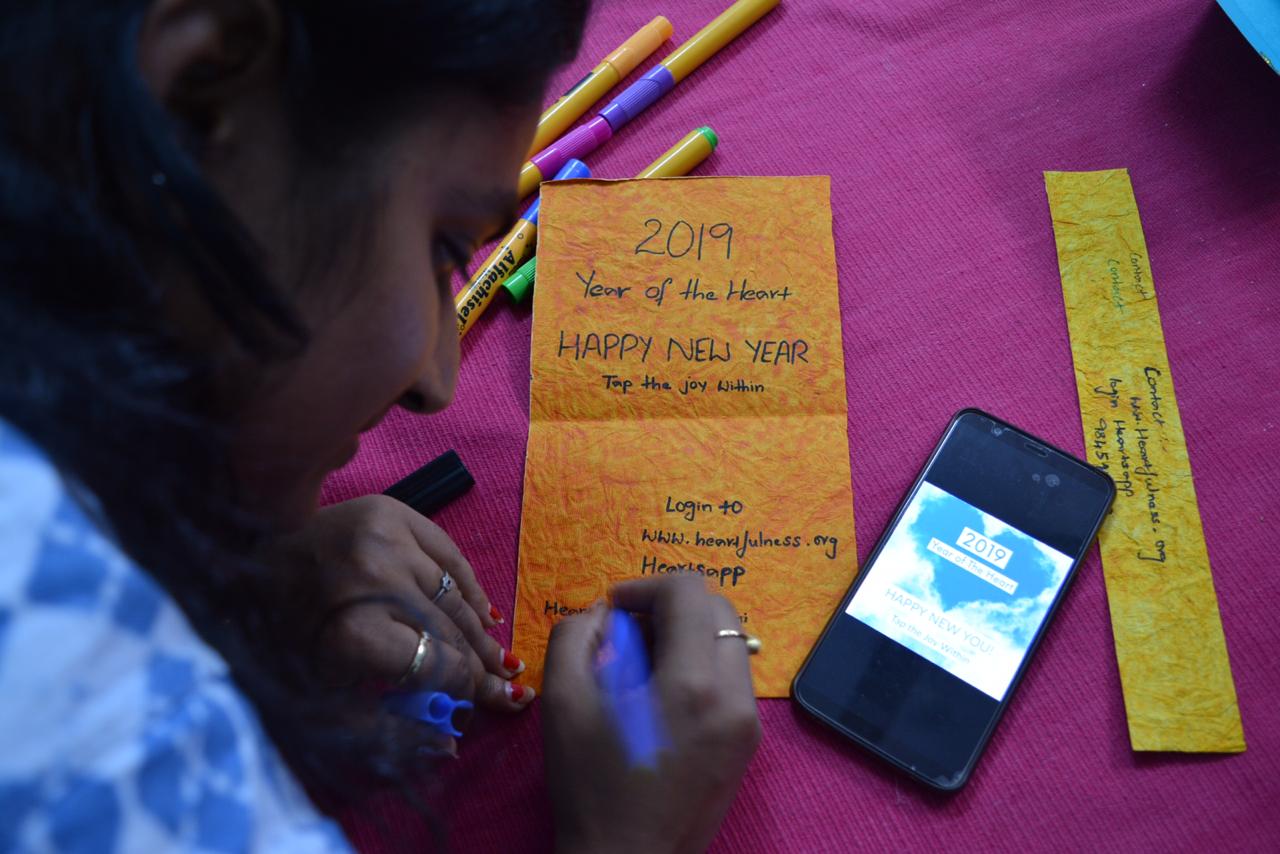 Alfachisel
2019
Year of the Heart
HAPPY NEW YEAR
Tap the joy within
Login to
www.heartfulness.org
Heartsapp
2019
Year of The Heart
HAPPY NEW YOU!
Tap the Joy Within
Contact
Contact
Contact
www.Heartfulness.org
login Heartsapp